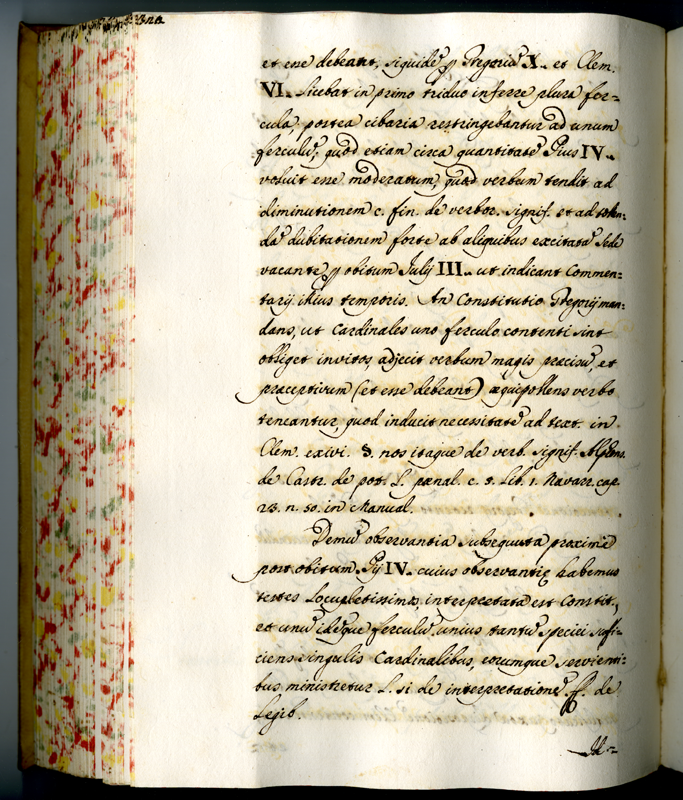 et esse debeant, siquidē p̱ Gregoriū X., et Clem.
VI. licebat in primo triduo inferre plura fer=
cula, postea cibaria restringebantur ad unum
ferculū, quod etiam circa quantitatē Pius IV.
voluit esse moderatum, quod verbum tendit ad
diminutionem c. fin. de verbor. signif. et ad tollen=
dā dubitationem forte ab aliquibus excitatā Sede
vacante p̱ obitum Julij III., ut indicant Commen=
tarij illius temporis. An Constitutio Gregorij man=
dans, ut Cardinales uno ferculo contenti sint
obliget invitos, adjecit verbum magis præcisū, et
præceptivum (et esse debeant) æquipollens verbo
teneantur, quod inducit necessitatē ad text. in
Clem. exivi. §. nos itaque de verb. signif. Alphons.
de Castr. de pot. L. pænal. c. 5. Lib. 1. Navarr. cap.
23. n. 50. in Manual.
Demū observantia subsequuta proximè
post obitum Pij IV. cuius observantię habemus
testes locupletissimos, interpretata est Constit.,
et unū idēque ferculū unius tantū speciei suffi=
ciens singulis Cardinalibus, eorumque servienti=
bus ministretur L. si de interpretatione ff. de
Legib.